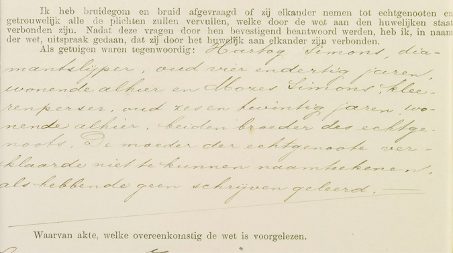 Ik heb bruidegom en bruid afgevraagd of zij elkander nemen tot echtgenooten en
getrouwelijk alle de plichten zullen vervullen, welke door de wet aan den huwelijken staat
verbonden zijn. Nadat deze vragen door hen bevestigend beantwoord werden, heb ik, in naam
der wet, uitspraak gedaan, dat zij door het huwelijk aan elkander zijn verbonden.
Als getuigen waren tegenwoordig: Hartog Simons, dia-
mantslijper, oud vier en dertig jaren,
wonende alhier en Mozes Simons klee-
renperser, oud zes en twintig jaren, wo-
nende alhier, beiden broeder des echtge-
noots. De moeder der echtgenoote ver-
klaarde niet te kunnen naamteekenen,
als hebbende geen schrijven geleerd.
Waarvan akte, welke overeenkomstig de wet is voorgelezen.